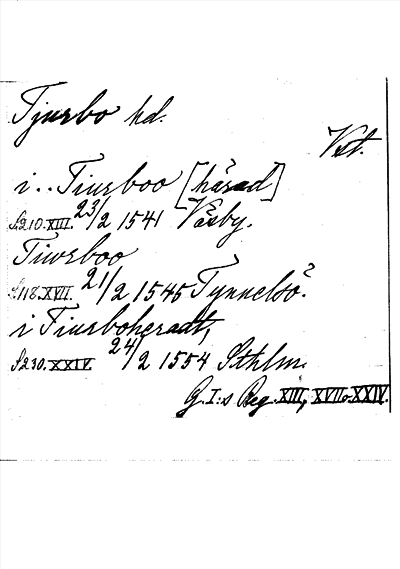 Tjurbo hd.
Vst.
i.. Tiurboo [härad]
S.210.XIII. 23/2 1541 Väsby.
Tiwrboo
S.118.XVII. 21/2 1545 Tynnelsö.
i Tiurboheradt,
S.230.XXIV. 24/2 1554 Sthlm.
G.I:s Reg. XIII, XVII o. XXIV.